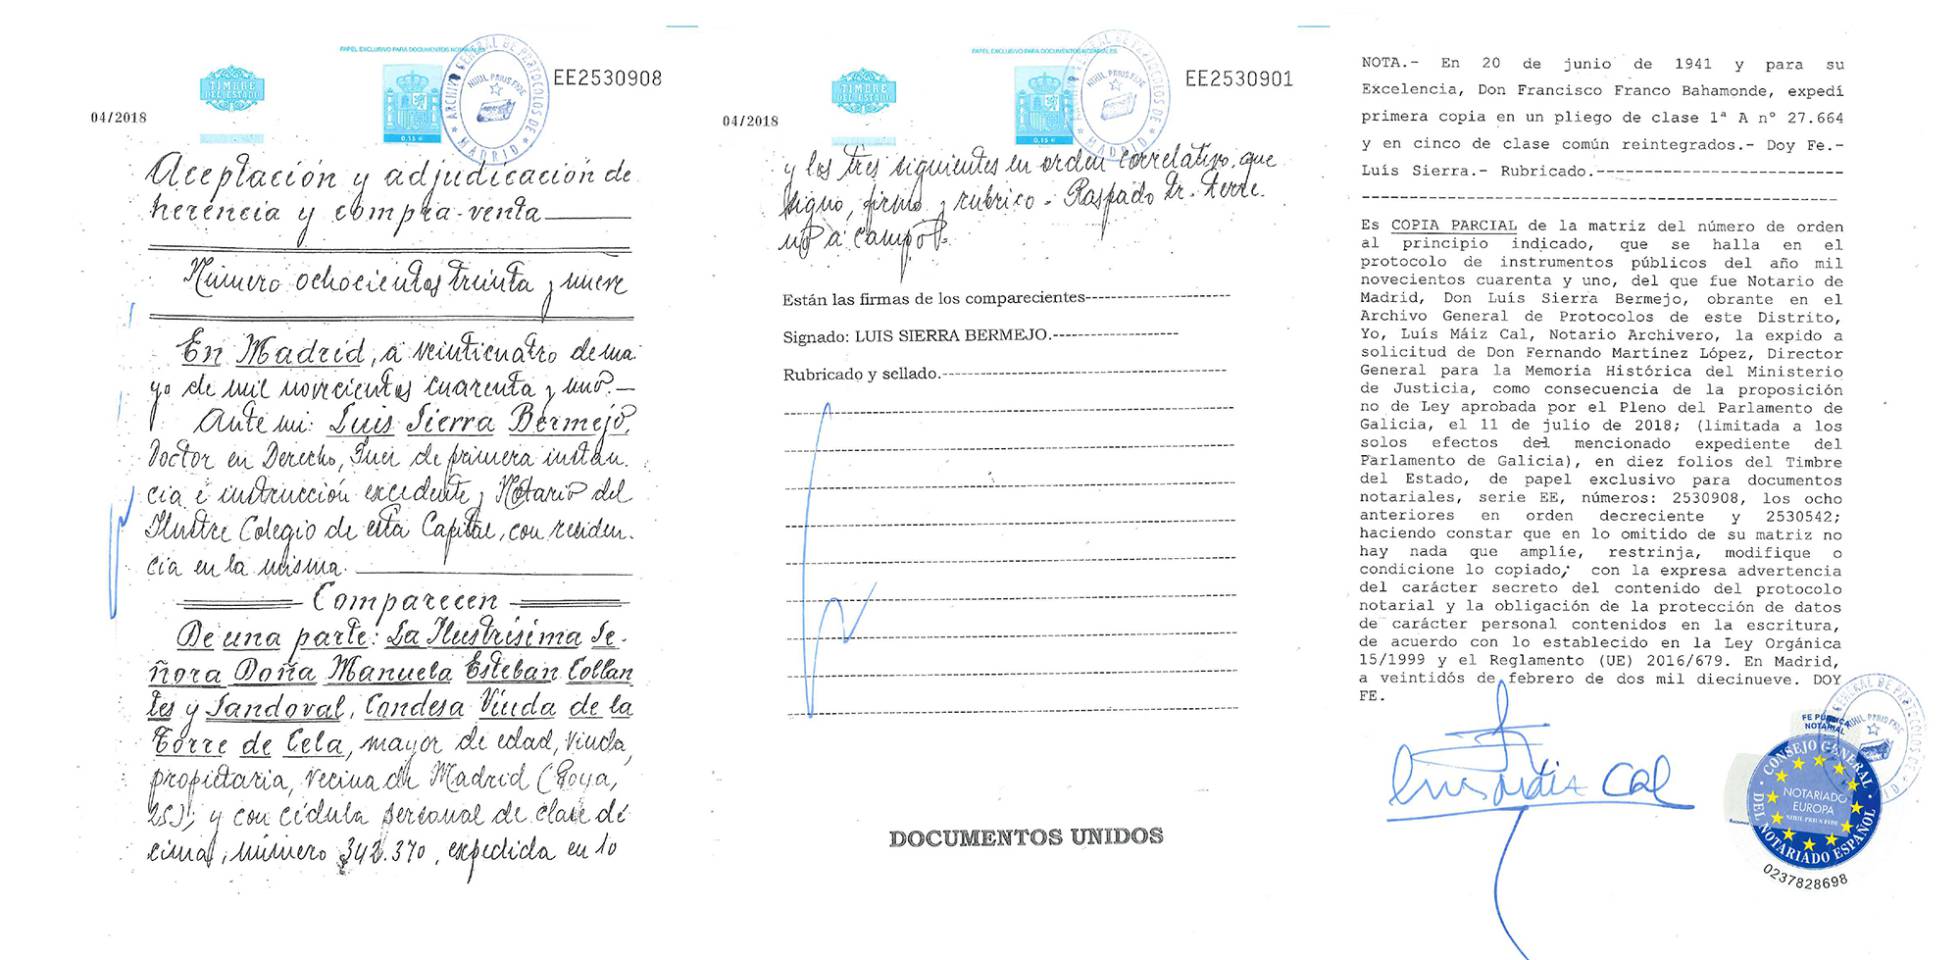 PAPEL EXCLUSIVO PARA DOCUMENTOS NOTARIALES
TIMBRE
DEL ESTADO
0,15 €
ARCHIVO GENERAL DE PROTOCOLOS DE MADRID
NIHIL PRIUS FIDE
EE2530908
04/2018
Aceptación y adjudicación de
herencia y compra-venta
Número ochocientos treinta y nueve
En Madrid, a veinticuatro de ma
yo de mil novecientos cuarenta y uno.—
Ante mi: Luis Sierra Bermejo,
Doctor en Derecho, Juez de primera instan.
cia é instrucción excedente y Notario del
Ilustre Colegio de esta Capital, con residen.
cia en la misma.
Comparecen
De una parte: La Ilustrísima Se-
ñora Doña Manuela Esteban Collan
tes y Sandoval, Condesa Viuda de la
Torre de Cela, mayor de edad, viuda,
propietaria, vecina de Madrid (Goya,
25), y con cédula personal de clase dé
cima, número 342.370, expedida en 10
PAPEL EXCLUSIVO PARA DOCUMENTOS NOTARIALES
TIMBRE
DEL ESTADO
0,15 €
ARCHIVO GENERAL DE PROTOCOLOS DE MADRID
NIHIL PRIUS FIDE
EE2530901
04/2018
y los tres siguientes en orden correlativo, que
signo, firmo y rubrico - Raspado
a
Están las firmas de los comparecientes
Signado: LUIS SIERRA BERMEJO.
Rubricado y sellado.
DOCUMENTOS UNIDOS
NOTA.- En 20 de junio de 1941 y para su
Excelencia, Don Francisco Franco Bahamonde, expedí
primera copia en un pliego de clase 1ª A nº 27.664
y en cinco de clase común reintegrados.- Doy Fe.-
Luís Sierra.- Rubricado.
Es COPIA PARCIAL de la matriz del número de orden
al principio indicado, que se halla en el
protocolo de instrumentos públicos del año mil
novecientos cuarenta y uno, del que fue Notario de
Madrid, Don Luís Sierra Bermejo, obrante en el
Archivo General de Protocolos de este Distrito,
Yo, Luís Máiz Cal, Notario Archivero, la expido a
solicitud de Don Fernando Martínez López, Director
General para la Memoria Histórica del Ministerio
de Justicia, como consecuencia de la proposición
no de Ley aprobada por el Pleno del Parlamento de
Galicia, el 11 de julio de 2018; (limitada a los
solos efectos del mencionado expediente del
Parlamento de Galicia), en diez folios del Timbre
del Estado, de papel exclusivo para documentos
notariales, serie EE, números: 2530908, los ocho
anteriores en orden decreciente y 2530542;
haciendo constar que en lo omitido de su matriz no
hay nada que amplíe, restrinja, modifique o
condicione lo copiado; con la expresa advertencia
del carácter secreto del contenido del protocolo
notarial y la obligación de la protección de datos
de carácter personal contenidos en la escritura,
de acuerdo con lo establecido en la Ley Orgánica
15/1999 y el Reglamento (UE) 2016/679. En Madrid,
a veintidós de febrero de dos mil diecinueve. DOY
FE.
FE PÚBLICA
NOTARIAL
CONSEJO GENERAL DEL NOTARIADO ESPAÑOL
NOTARIADO
EUROPA
NIHIL PRIUS FIDE
0237828698